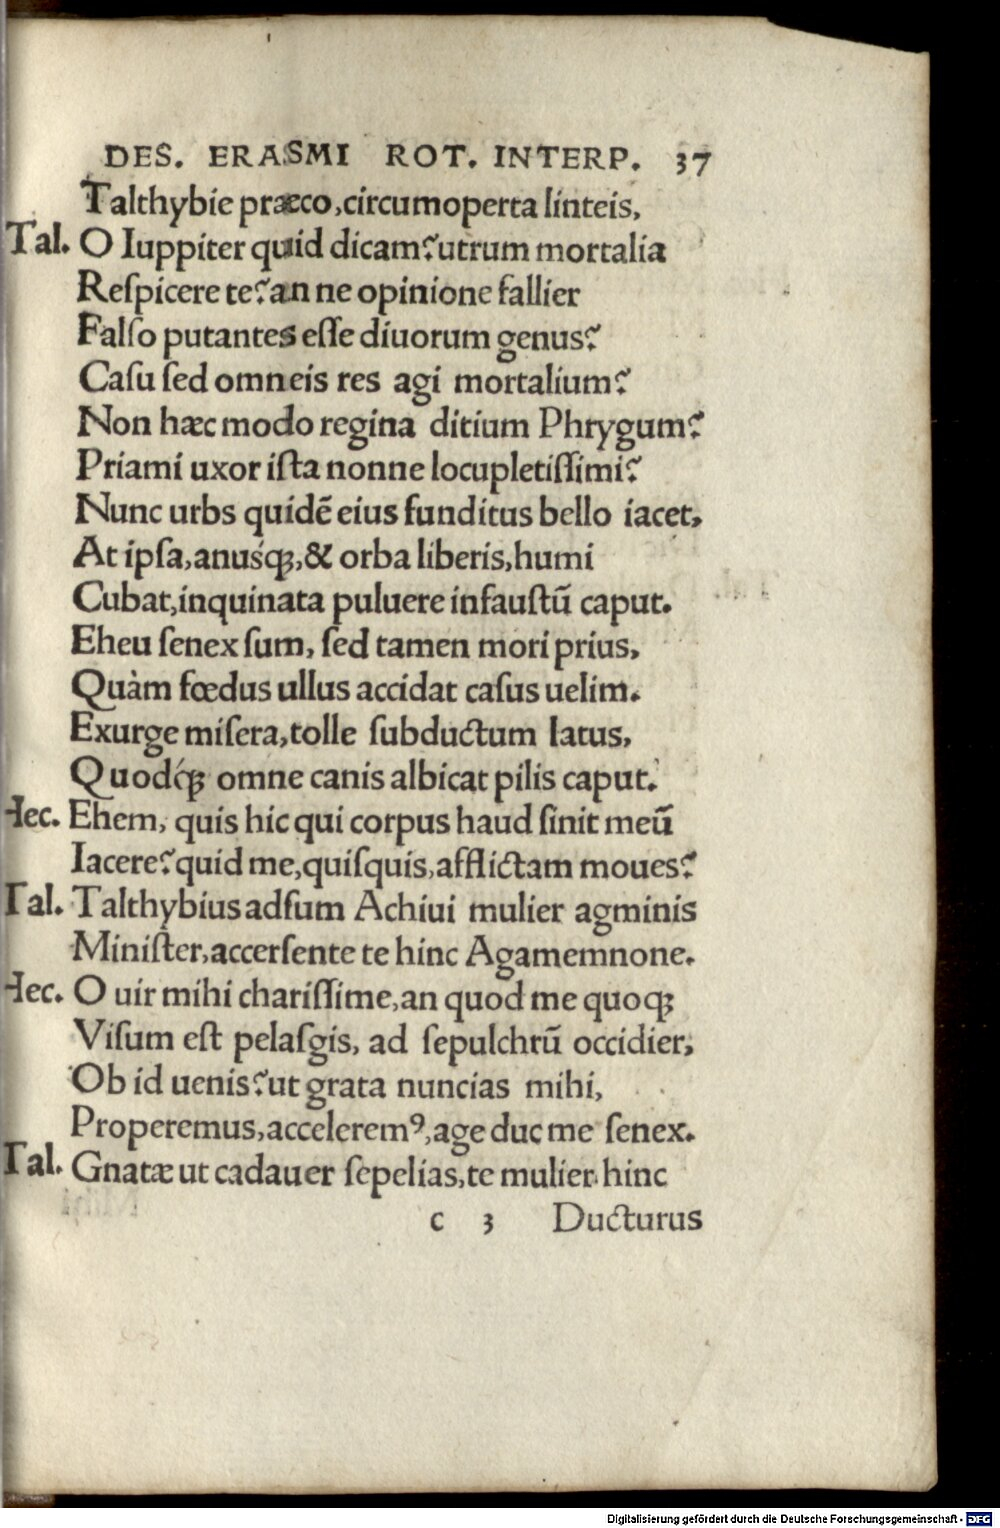 DES. ERASMI ROT. INTERP. 37
Talthybie præco, circumoperta linteis,
Tal. O Iuppiter quid dicam? utrum mortalia
Reſpicere te? an ne opinione fallier
Falſo putantes eſſe diuorum genus?
Caſu ſed omneis res agi mortalium?
Non hæc modo regina ditium Phrygum?
Priami uxor iſta nonne locupletiſſimi?
Nunc urbs quidē eius funditus bello iacet,
At ipſa, anusq́ꝫ, & orba liberis, humi
Cubat, inquinata puluere infauſtū caput.
Eheu ſenex ſum, ſed tamen mori prius,
Quàm fœdus ullus accidat caſus uelim.
Exurge miſera, tolle ſubductum latus,
Quodq́ꝫ omne canis albicat pilis caput.
Hec. Ehem, quis hic qui corpus haud ſinit meū
Iacere? quid me, quiſquis, afflictam moues?
Tal. Talthybius adſum Achiui mulier agminis
Miniſter, accerſente te hinc Agamemnone.
Hec. O uir mihi chariſſime, an quod me quoqꝫ
Viſum eſt pelaſgis, ad ſepulchrū occidier,
Ob id uenis? ut grata nuncias mihi,
Properemus, acceleremꝰ, age duc me ſenex.
Tal. Gnatæ ut cadauer ſepelias, te mulier hinc
c 3 Ducturus
Digitalisierung gefördert durch die Deutsche Forschungsgemeinschaft - DFG